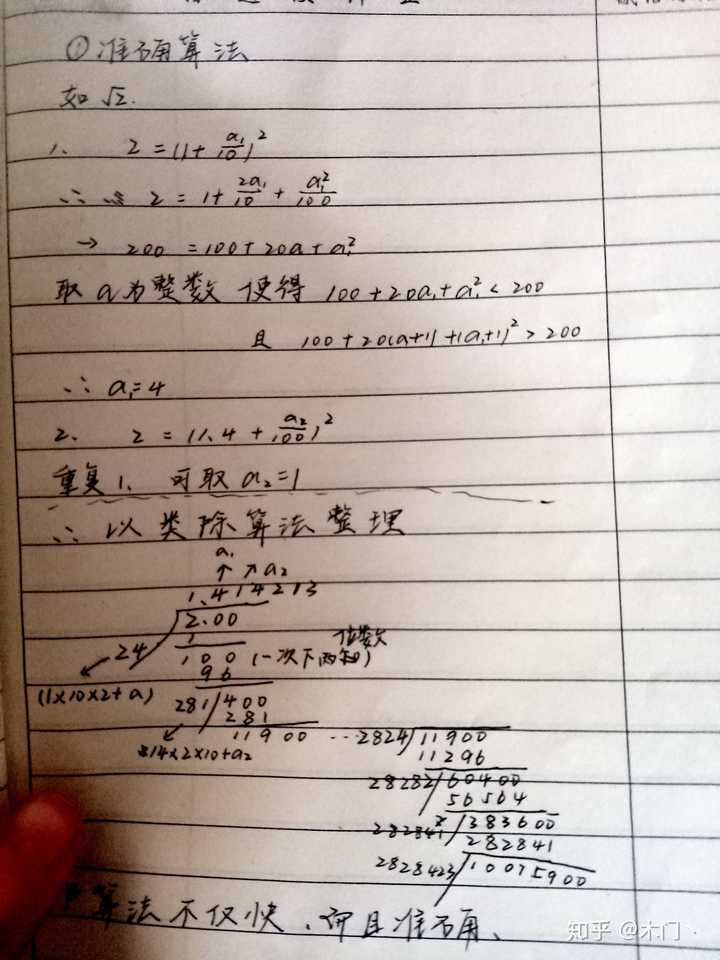 ①准确算法
如√2.
1. 2=(1+a₁/10)²
∴ 2=1+2a₁/10+a₁²/100
→ 200=100+20a₁+a₁²
取a为整数 使得 100+20a₁+a₁²<200
且 100+20(a+1)+(a₁+1)²>200
∴ a₁=4
2. 2=(1.4+a₂/100)²
重复1. 可取a₂=1
∴ 以类除算法整理
a₁
↑ ↗a₂
1.414213
2.00
1
24
100 (一次下两位数)
96
(1×10×2+a)
281 400
281
11900 ... 2824 11900
14×2×10+a₂
11296
28282 60400
56564
282841 383600
282841
2828423 10075900
算法不仅快、而且准确、
知乎 @木门